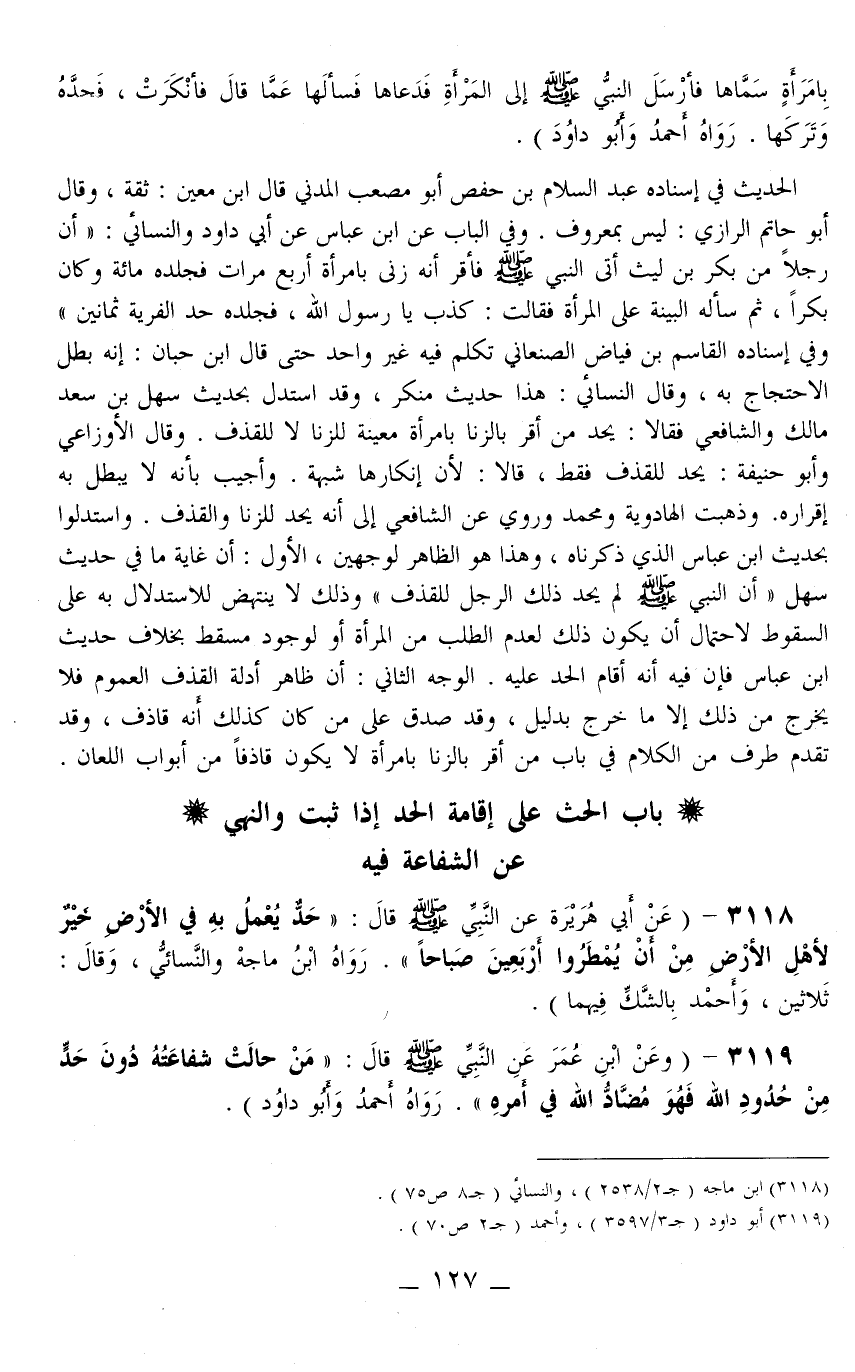 بِامَرَأَةٍ سَمَّاها فأرْسَلَ النبيُّ ﷺ إلى المَرْأَةِ فَدَعاها فَسألَها عَمَّا قالَ فأنْكَرَتْ ، فَحدَّهُ
وَتَرَكَها . رَوَاهُ أَحمدُ وَأَبُو داوُدَ ) .
الحديث في إسناده عبد السلام بن حفص أبو مصعب المدني قال ابن معين : ثقة ، وقال
أبو حاتم الرازي : ليس بمعروف . وفي الباب عن ابن عباس عن أبي داود والنسائي : « أن
رجلاً من بكر بن ليث أتى النبي ﷺ فأقر أنه زنى بامرأة أربع مرات فجلده مائة وكان
بكراً ، ثم سأله البينة على المرأة فقالت : كذب يا رسول الله ، فجلده حد الفرية ثمانين »
وفي إسناده القاسم بن فياض الصنعاني تكلم فيه غير واحد حتى قال ابن حبان : إنه بطل
الاحتجاج به ، وقال النسائي : هذا حديث منكر ، وقد استدل بحديث سهل بن سعد
مالك والشافعي فقالا : يحد من أقر بالزنا بامرأة معينة للزنا لا للقذف . وقال الأوزاعي
وأبو حنيفة : يحد للقذف فقط ، قالا : لأن إنكارها شبهة . وأجيب بأنه لا يبطل به
إقراره. وذهبت الهادوية ومحمد وروي عن الشافعي إلى أنه يحد للزنا والقذف . واستدلوا
بحديث ابن عباس الذي ذكرناه ، وهذا هو الظاهر لوجهين ، الأول : أن غاية ما في حديث
سهل « أن النبي ﷺ لم يحد ذلك الرجل للقذف » وذلك لا ينتهض للاستدلال به على
السقوط لاحتمال أن يكون ذلك لعدم الطلب من المرأة أو لوجود مسقط بخلاف حديث
ابن عباس فإن فيه أنه أقام الحد عليه . الوجه الثاني : أن ظاهر أدلة القذف العموم فلا
يخرج من ذلك إلا ما خرج بدليل ، وقد صدق على من كان كذلك أَنه قاذف ، وقد
تقدم طرف من الكلام في باب من أقر بالزنا بامرأة لا يكون قاذفاً من أبواب اللعان .
✸ باب الحث على إقامة الحد إذا ثبت والنهي ✸
عن الشفاعة فيه
٣١١٨ - ( عَنْ أَبي هُرَيْرَة عن النَّبِيِّ ﷺ قالَ : « حَدٌّ يُعْملُ بهِ في الأرْضِ خَيْرٌ
لأهْلِ الأرْضِ مِنْ أَنْ يُمْطَرُوا أَرْبَعِينَ صَباحاً » . رَوَاهُ ابْنُ ماجهْ والنَّسائيُّ ، وَقالَ :
ثَلاثين ، وَأَحمْد بِالشَّكِّ فِيهما ) .
٣١١٩ - ( وعَنْ ابْنِ عُمَرَ عَنِ النَّبِيِّ ﷺ قالَ : « مَنْ حالَتْ شفاعَتُهُ دُونَ حَدٍّ
مِنْ حُدُودِ الله فَهُوَ مُضَّادُّ الله في أَمرهِ » . رَوَاهُ أَحمدُ وَأَبُو داوُد ) .
(٣١١٨) ابن ماجه ( جـ٢/ ٢٥٣٨ ) ، والنسائي ( جـ٨ ص٧٥ ) .
(٣١١٩) أبو داود ( جـ٣/ ٣٥٩٧ ) ، وأحمد ( جـ٢ ص٧٠ ) .
_ ١٢٧ _